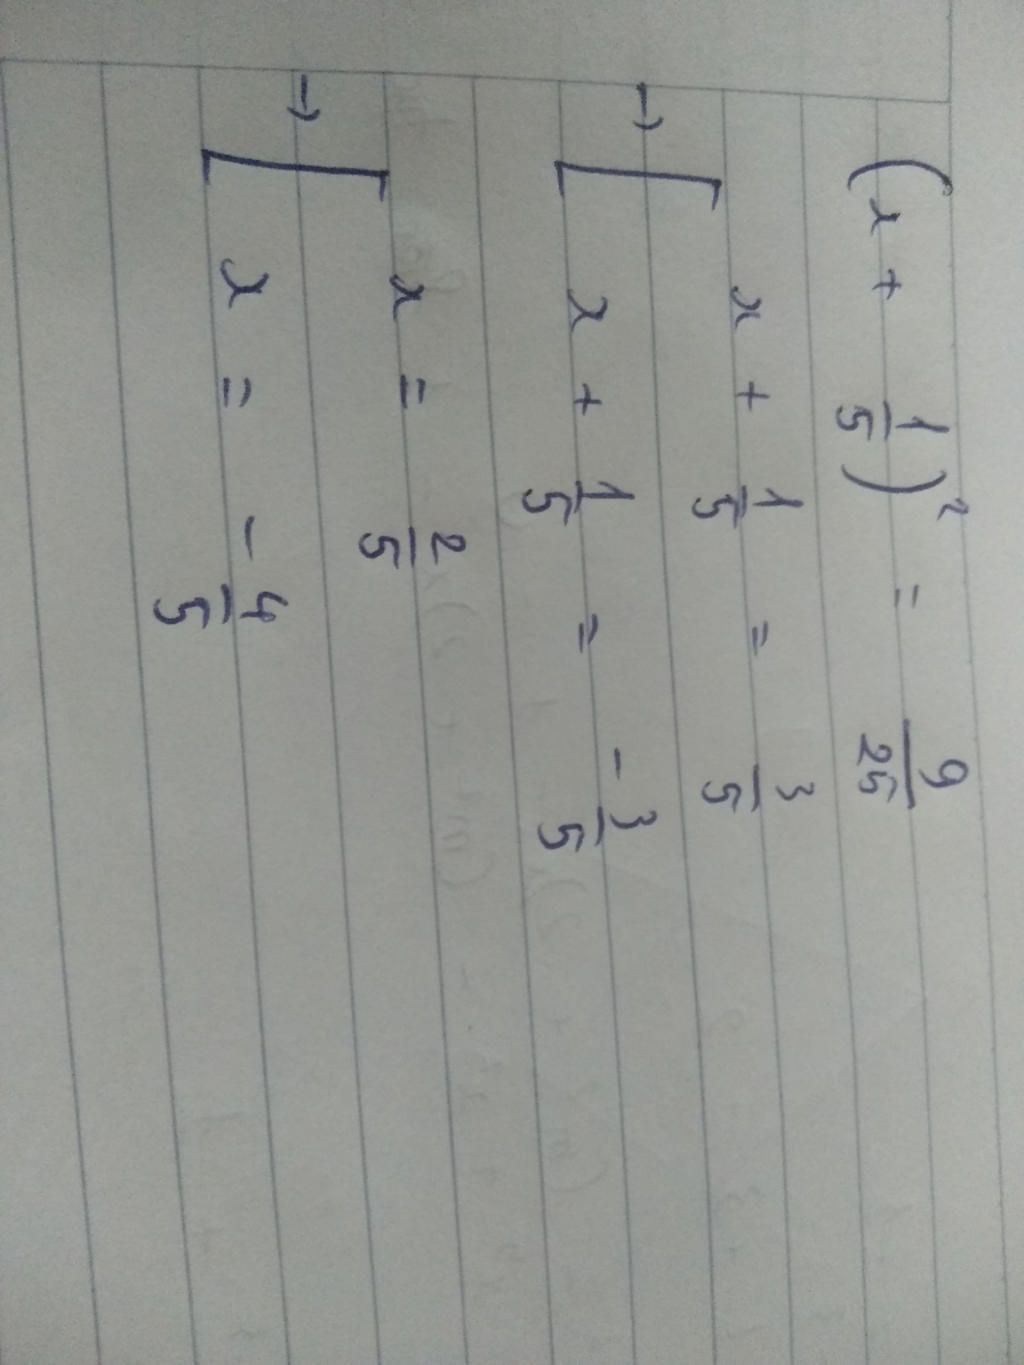 (x + 1/5)² = 9/25
→ [ x + 1/5 = 3/5
x + 1/5 = - 3/5
→ [ x = 2/5
x = - 4/5